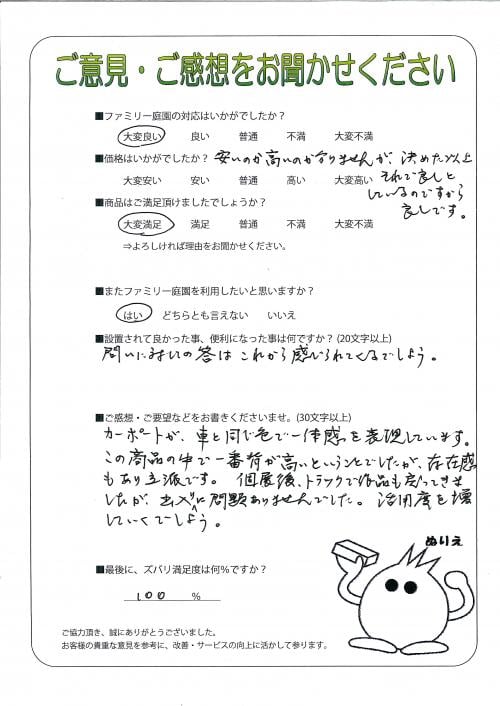 ご意見・ご感想をお聞かせください
■ファミリー庭園の対応はいかがでしたか？
大変良い 良い 普通 不満 大変不満
■価格はいかがでしたか？ 安いのか高いのか分りませんが、決めた以上
大変安い 安い 普通 高い 大変高い それで良しと
しているのですから
良しです。
■商品はご満足頂けましたでしょうか？
大変満足 満足 普通 不満 大変不満
⇒よろしければ理由をお聞かせください。
■またファミリー庭園を利用したいと思いますか？
はい どちらとも言えない いいえ
■設置されて良かった事、便利になった事は何ですか？(20文字以上)
問いに対しての答はこれから感じられてくるでしょう。
■ご感想・ご要望などをお書きくださいませ。(30文字以上)
カーポートが、車と同じ色で一体感を表現しています。
この商品の中で一番背が高いということでしたが、存在感
もあり立派です。個展後、トラックで作品も戻ってきま
したが、出入りに問題ありませんでした。活用度を増
していくでしょう。
ぬりえ
■最後に、ズバリ満足度は何％ですか？
100 ％
ご協力頂き、誠にありがとうございました。
お客様の貴重な意見を参考に、改善・サービスの向上に活かして参ります。